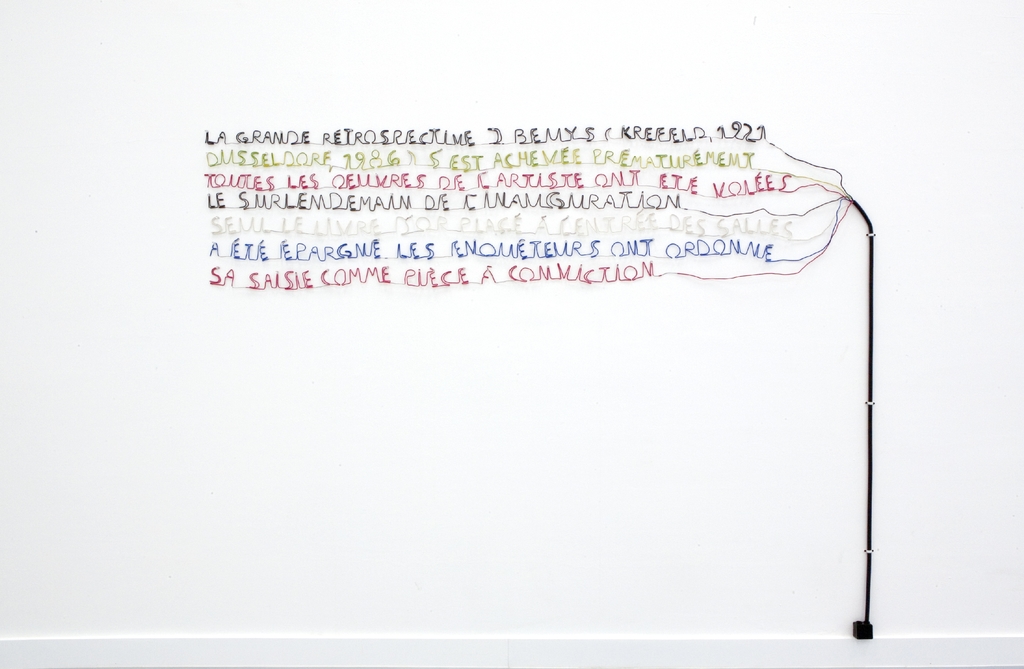 LA GRANDE RÉTROSPECTIVE J BEUYS (KREFELD, 1921
DUSSELDORF, 1986) S EST ACHEVÉE PRÉMATURÉMENT
TOUTES LES OEUVRES DE L ARTISTE ONT ÉTÉ VOLÉES
LE SURLENDEMAIN DE L INAUGURATION
SEUL LE LIVRE D'OR PLACÉ À L'ENTRÉE DES SALLES
A ÉTÉ ÉPARGNÉ LES ENQUÊTEURS ONT ORDONNÉ
SA SAISIE COMME PIÈCE À CONVICTION